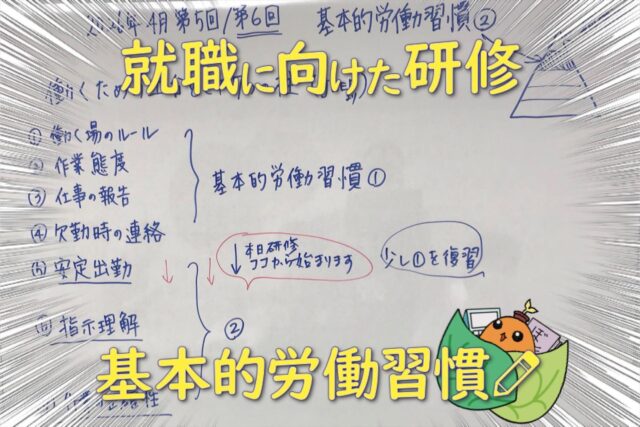 2026年4月第5回/第6回 基本的労働習慣②
就職に向けた研修
働くため
① 働く場のルール
② 作業態度
③ 仕事の報告
基本的労働習慣①
④ 欠勤時の連絡
安定出勤
↓本日研修
ココから始まります
少し①を復習
指示理解
②
基本的労働習慣
性